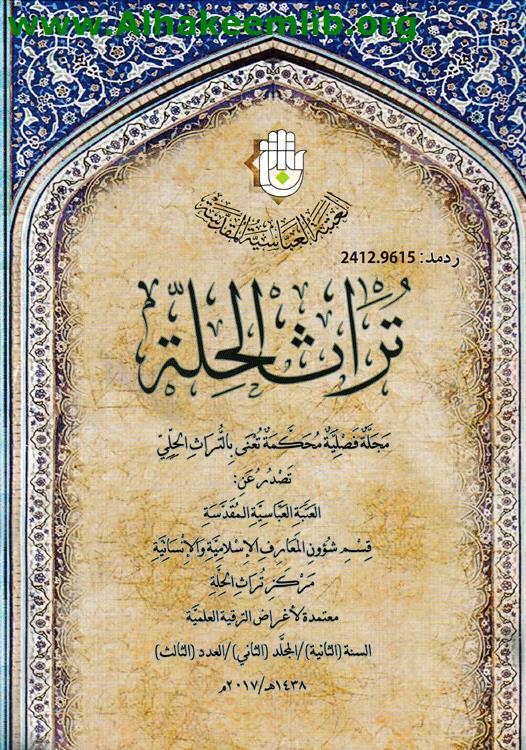 www.Alhakeemlib.org
العتبة العباسية المقدسة
ردمد: 2412.9615
تُراث الحِلّة
مَجَلَّةٌ فَصْلِيَّةٌ مُحَكَّمَةٌ تُعْنَى بِالتُّرَاثِ الحِلِّيّ
تَصْدُرُ عَنِ:
العَتَبَةِ العَبَّاسِيَّةِ المُقَدَّسَةِ
قِسْمِ شُؤُونِ المَعَارِفِ الإِسْلَامِيَّةِ وَالإِنْسَانِيَّةِ
مَرْكَزِ تُرَاثِ الحِلَّةِ
معتمدة لأغراض الترقية العلميّة
السنة (الثانية)/المجلّد (الثاني)/العدد (الثالث)
١٤٣٨هـ/٢٠١٧م